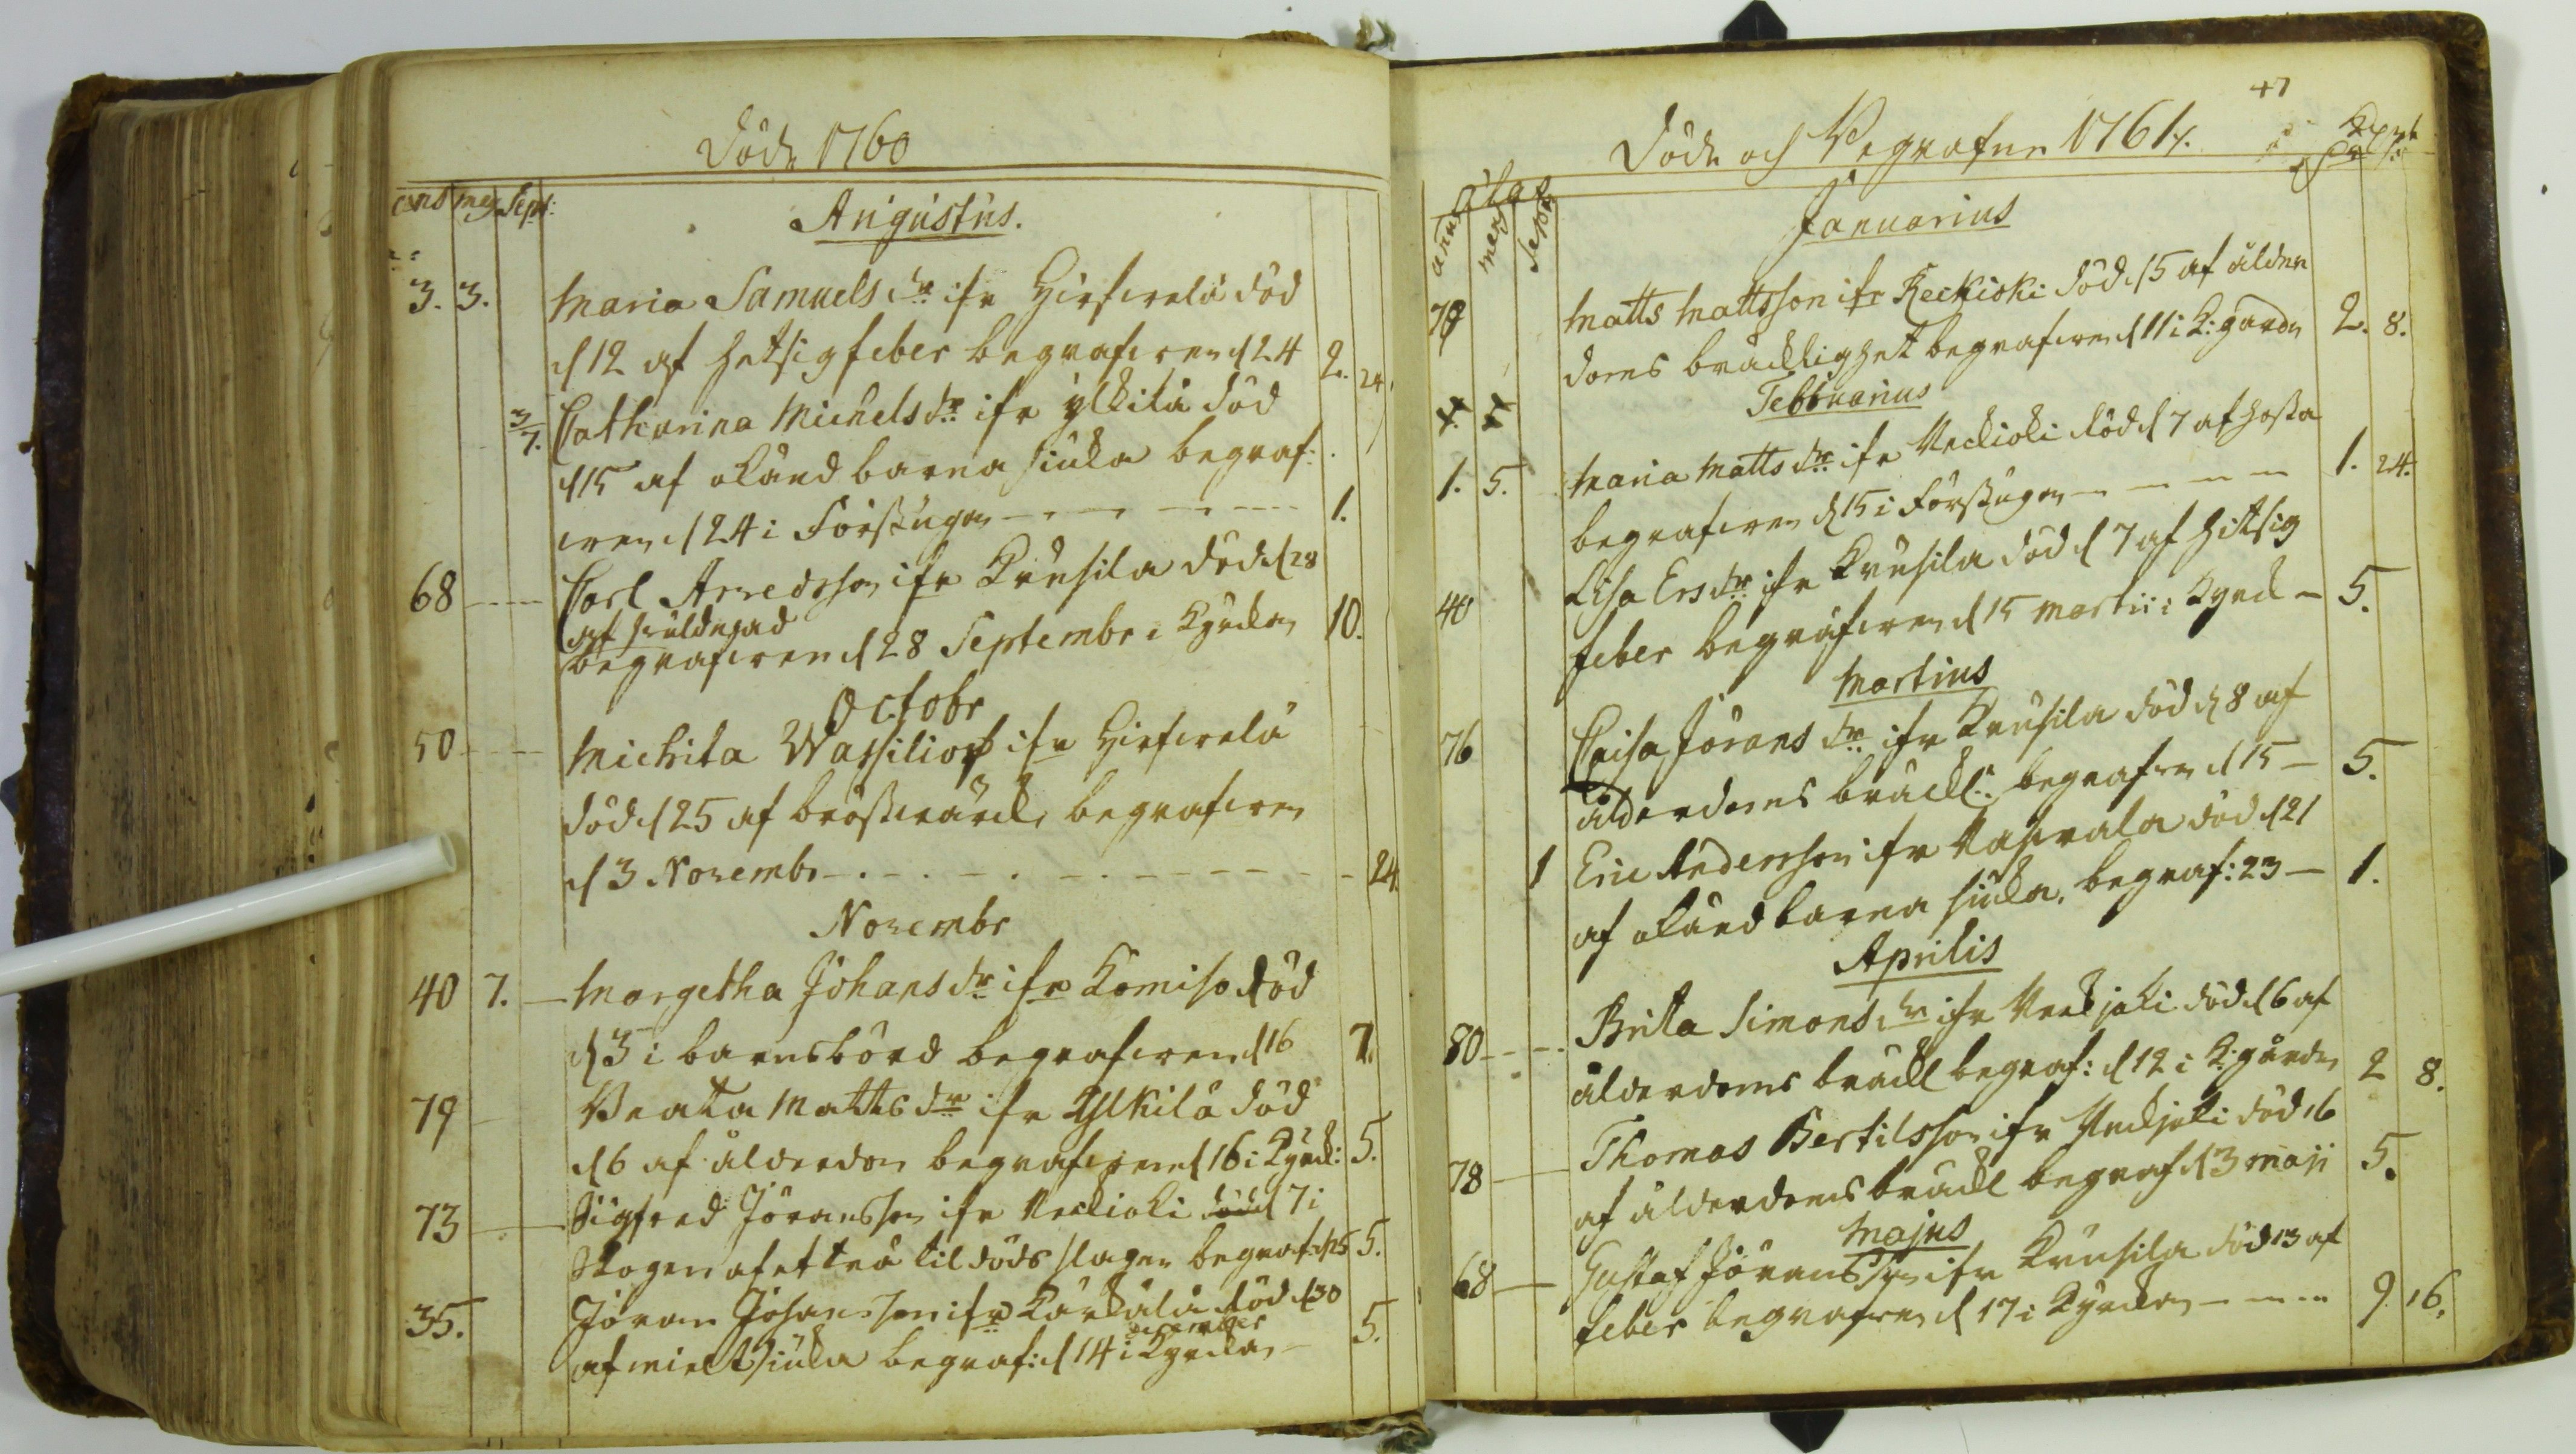 Döde 1760
ans mens Sept:
Augustus.
3. 3. Maria Samuels dr ifr Hirfwelä död
d 12 af hetsig feber begrafwen d 24 2. 24
3/7. Catharina Michels dr ifr ylkilä död
d 15 af okänd barna siuka begraf-
wen d 24 i Förstugan 1.
68 Carl Arvedsson ifr Krusila död d 28
af
begrafwen d 28 Septembr i Kyrkan 10.
Octobr
50 Michita Wassilioff ifr Hirfwelä
död d 25 af bröstwärck, begrafwen
d 3 Novembr 24
Novembr
40 7. Margetha Johans dr ifr Komiso död
d 3 i barnsbörd begrafwen d 16 7.
79 Beata Matts dr ifr Ylkilä död
d 6 af ålderdom begrafwen d 16 i Kyrk: 5.
73 Sigfred Jöransson ifr Reckioki död d 7 i
Skogen af et trä til döds slagen begraf: d 15 5.
35. Jöran Johansson ifr Kärkälä död d 30
december
af mieltsiuka begraf: d 14 i Kyrkan 5.
47
Döde och Begrafne 1761.
annus mens Sept
Januarius
79 Matts Mattsson ifr Reckioki död d 5 af ålder
doms bräcklighet begrafwen d 11 i K: gården 2. 8.
Februarius
1. 5. Maria Matts dr ifr Reckioki död d 7 af hosta
begrafwen d 15 i Förstugan 1. 24.
40 Lisa Ers dr ifr Krusila död d 7 af hitsig
feber begrafwen d 15 Martii i Kyrk 5.
Martius
76 Caisa Jörans dr ifr Krusila död d 8 af
ålderdoms bräckl: begrafwen d 15 5.
1 Eric Andersson ifr död d 21
af okänd barna siuka, begraf: 23 1.
Aprilis
80 Brita Simons dr ifr Reckjoki död d 6 af
ålderdoms bräckl begraf: d 12 i K: gården 2 8.
78 Thomas Bertilsson ifr Reckjoki död 16
af ålderdoms bräckl begraf d 3 maji 5.
Majus
68 Gustaf Jöransson ifr Krusila död 13 af
feber begrafwen d 17 i Kyrkan 9 16.